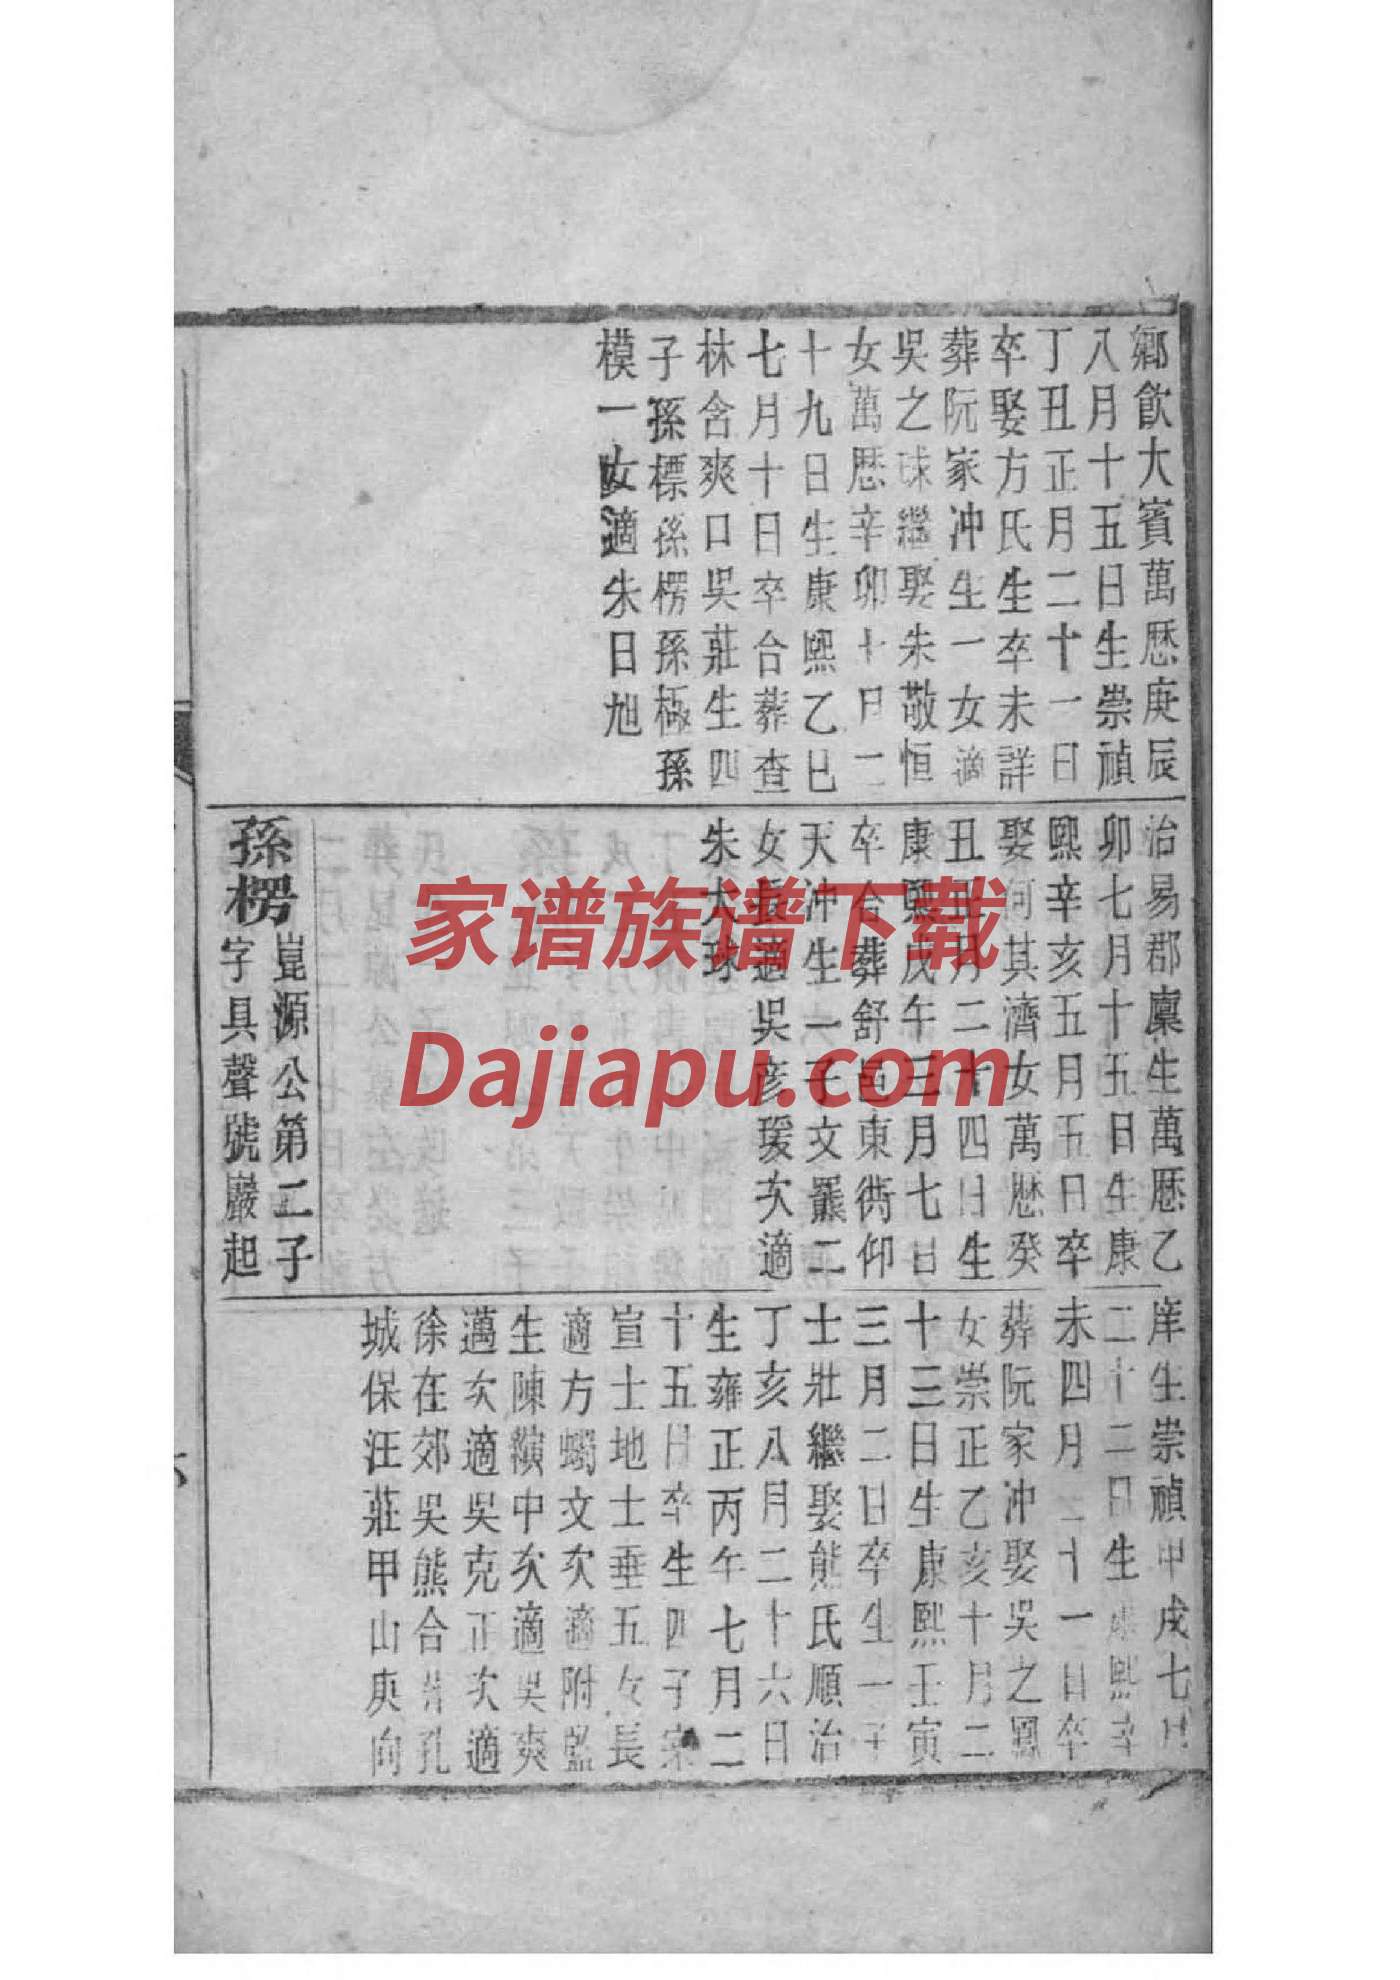 鄉飲大賓萬厯庚辰
八月十五日生崇禎
丁丑正月二十一日
卒娶方氏生卒未詳
葬阮家冲生一女適
吳之球繼娶朱敬恒
女萬厯辛卯十月二
十九日生康熙乙巳
七月十日卒合葬查
林含爽口吳莊生四
子孫標孫楞孫極孫
模一女適朱日旭
治易郡廪生萬厯乙
卯七月十五日生康
熙辛亥五月五日卒
娶何其濟女萬厯癸
丑 月二十四日生
康熙戊午三月七日
卒合葬舒邑東衖仰
天冲生一子文羆二
女長適吳彥瑗次適
朱大球
孫楞
崑源公第二子
字具聲號巖起
庠生崇禎甲戌七月
二十二日生康熙辛
未四月二十一日卒
葬阮家冲娶吳之鳳
女崇正乙亥十月二
十三日生康熙壬寅
三月二日卒生一子
士壯繼娶熊氏順治
丁亥八月二十六日
生雍正丙午七月二
十五日卒生四子士
宣士地士垂五女長
適方蠋文次適附監
生陳縯中次適吳爽
邁次適吳克正次適
徐在郊吳熊合葬孔
城保汪莊甲山庚向
家谱族谱下载
Dajiapu.com